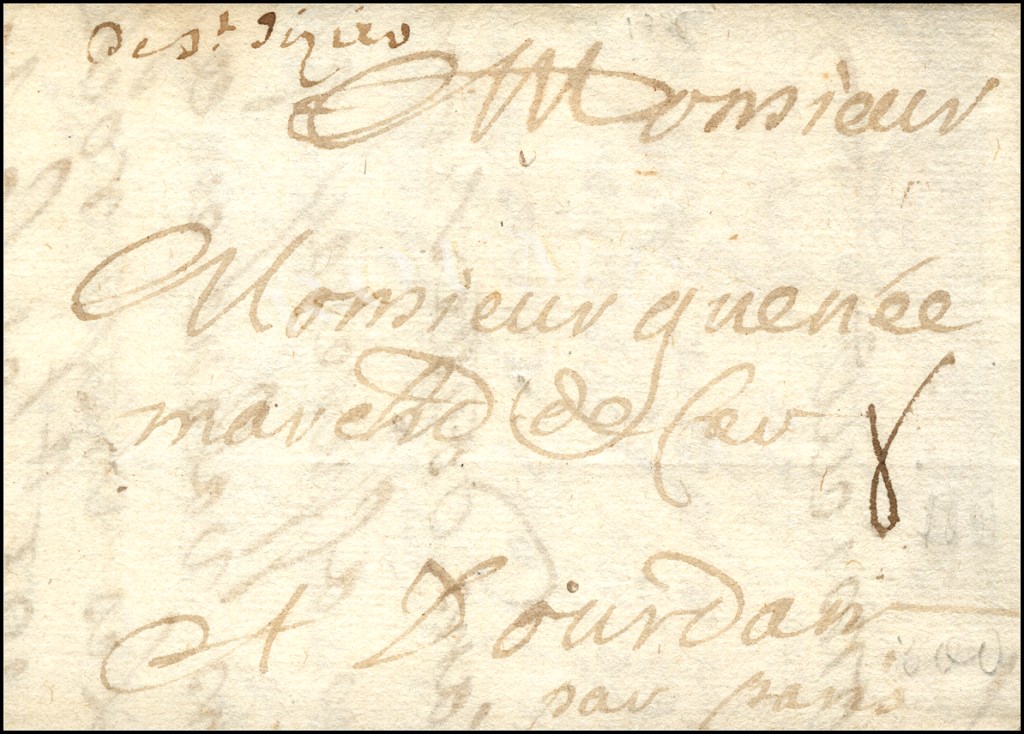 De St Dizier
Monsieur
Monsieur quenée
marchd de fer
8
A Dourdan
par paris